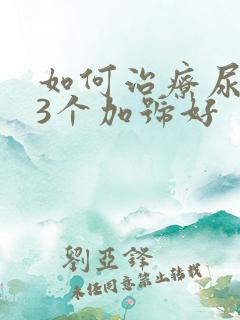 如何治療尿
3个加号好
劉亞鋒
未经同意禁止转载